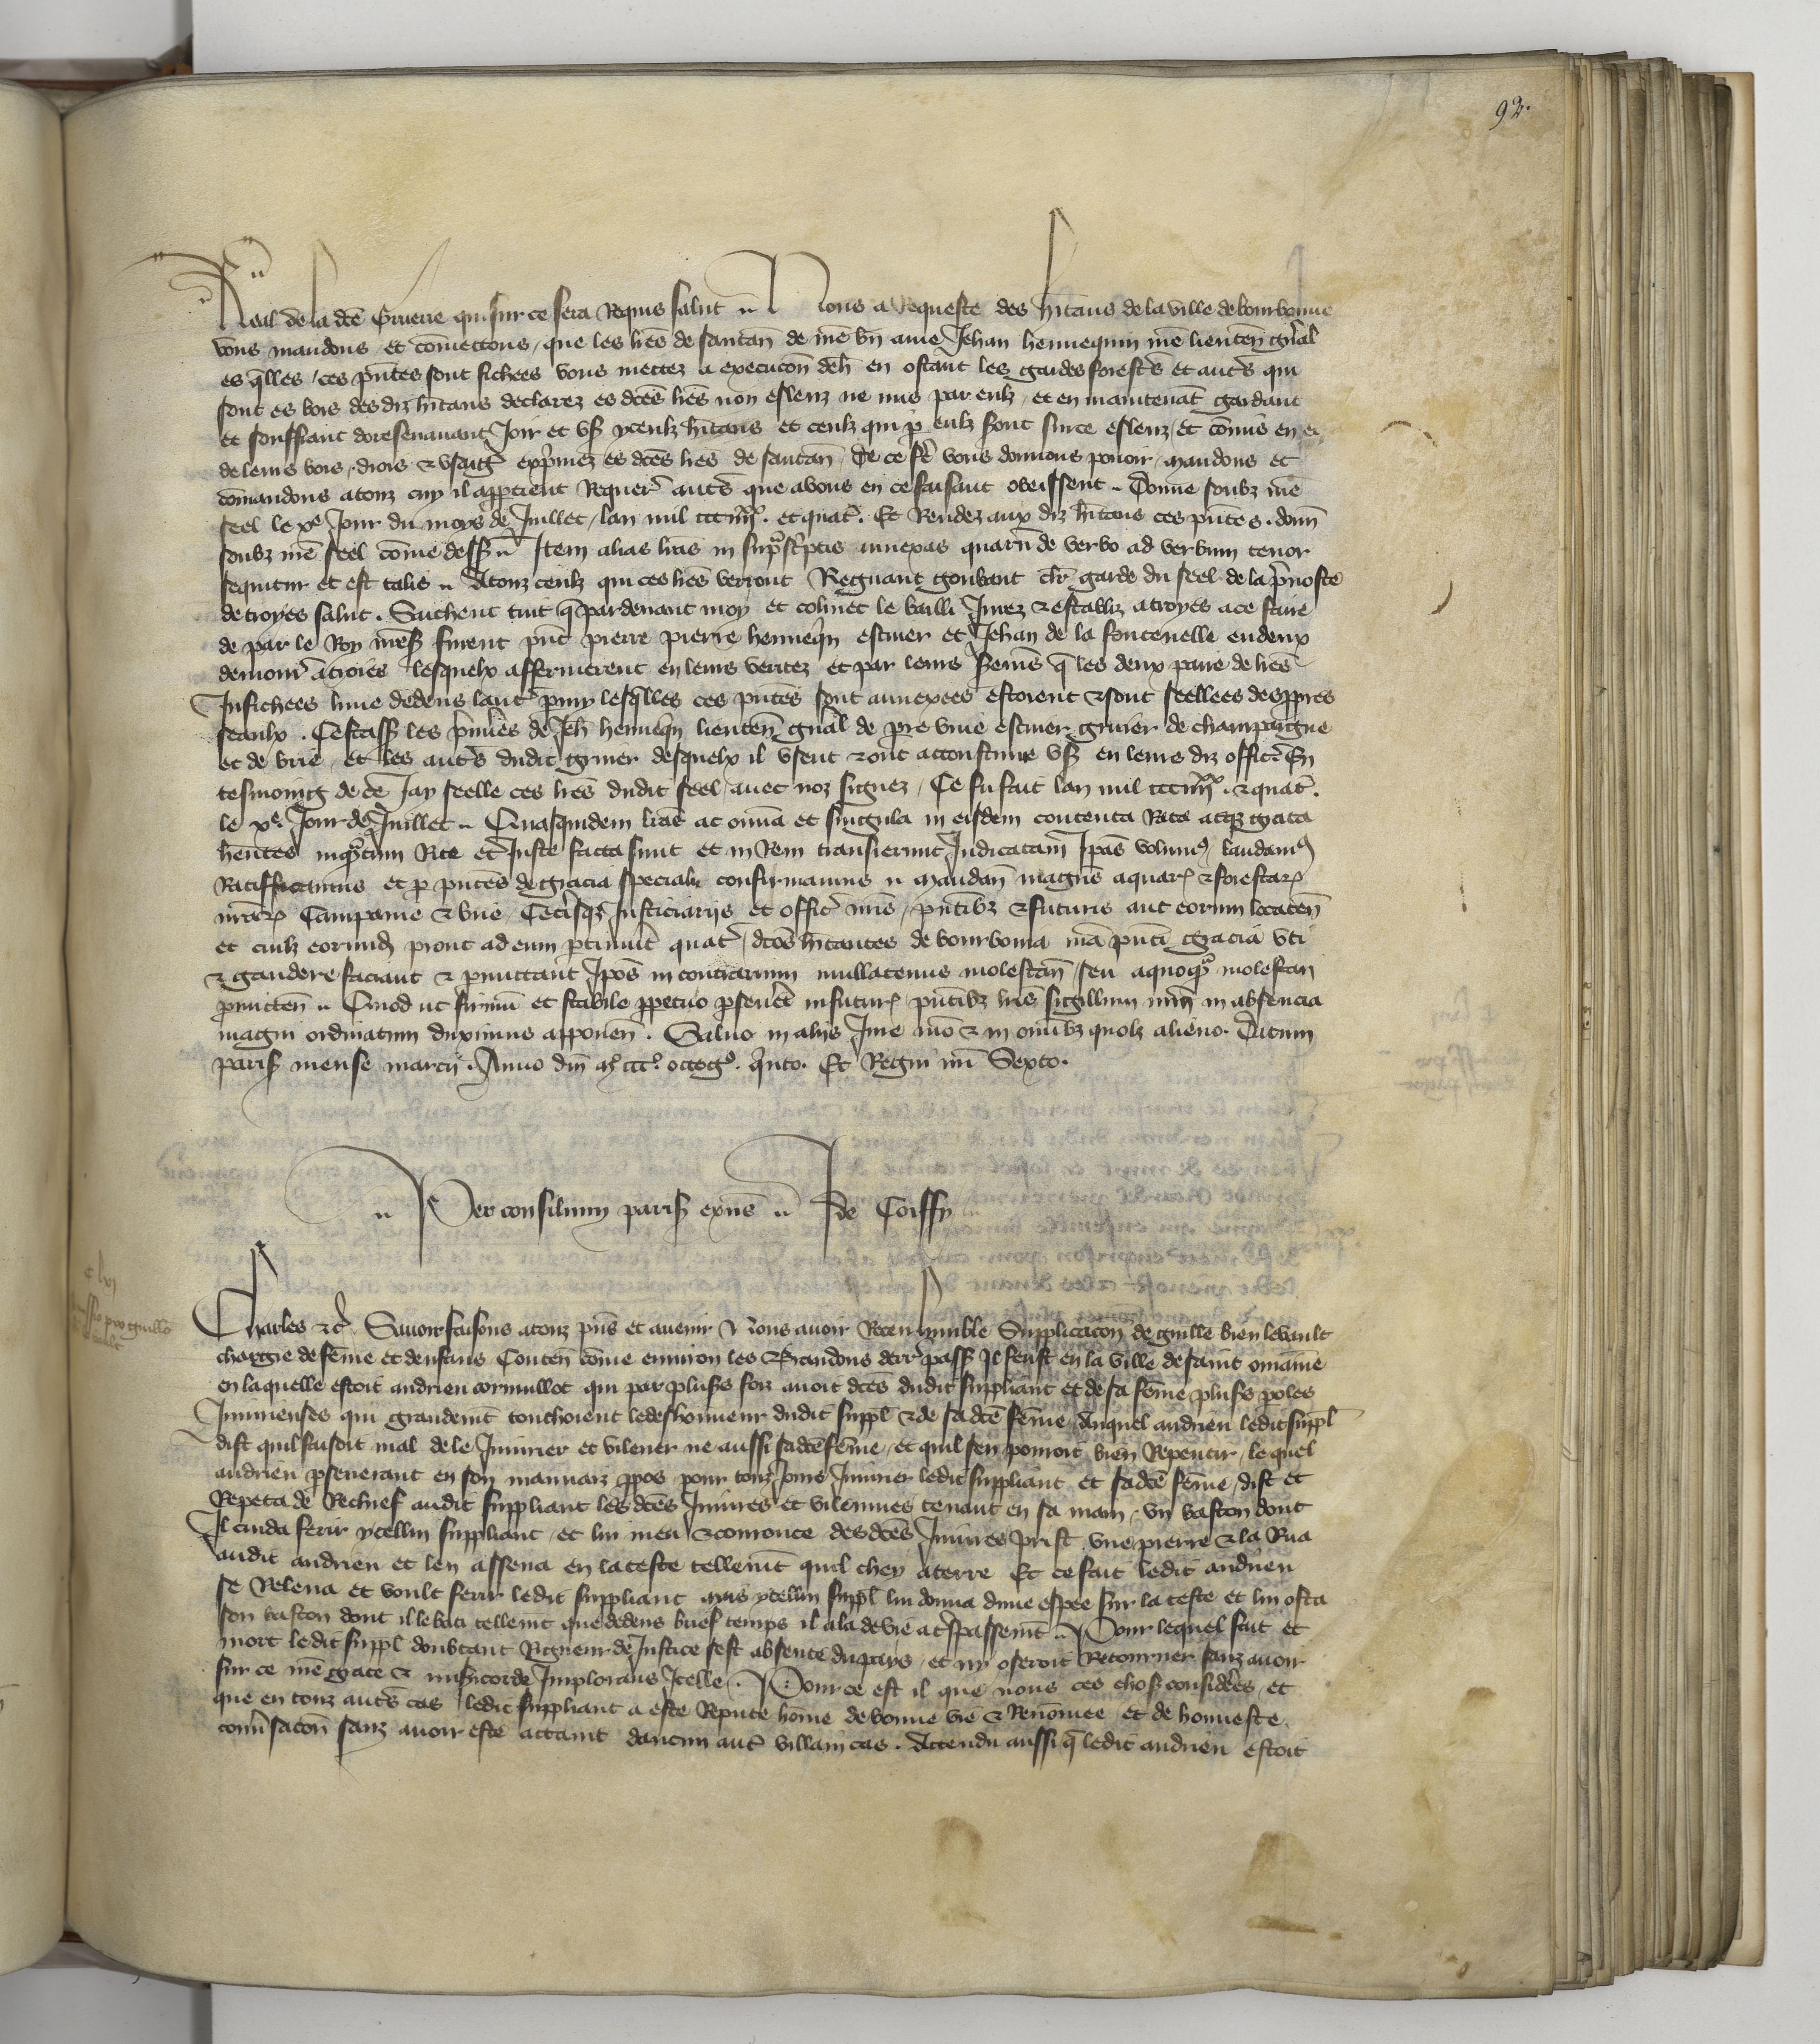 92.
Real de la dce Gruerie qui sur ce sera Requis salut Nous a Requeste des hitans de la ville de bourbonne
vous mandons et comettons que les lres de santan de nre bn ame Jehan hennequin nre lieuten gnal
es qlles ces pntes sont fichees vous mettez a execucon deh en ostant les gardes forests et autres qui
sont es bois des diz hitans declarez es dces lres non esleuz ne mis par eulz et en maintenat gardant
et souffrant doresenavant Joir et us yceulz hitans et ceulz qui p eulz sont sur ce esleuz et comis en
de leurs bois drois & usaig exprimez es dces lres de santan De ce fe vous donnons povoir mandons et
comandons a touz cuy il appertient Requer autres que a vous en ce faisant obeissent Donne soubz nre
seel le xe Jour du moys de Juillet lan mil ccc iiiixx et quatr Et Rendez aux diz hitans ces pntes donn
soubz nre seel come dess Item alias lras in suprascriptis annexas quaru de verbo ad verbum tenor
sequitur et est talis A touz ceulz qui ces lres verront Regnaut goubaut clr garde du seel de la pvoste
de troyes salut Saichent tuit q pardevant moy et colinet le bailli Jurez & establiz a troyes a ce faire
de par le Roy nres furent pnt pierre pierre henneqn escuier et Jehan de la fontenelle eudeux
demour a troies lesquelx affermerent en leurs veritez et par leurs serms q les deux paire de lres
Infichees lune dedens laut pmy lesqlles ces pntes sont annexees estoient & sont seellees des ppres
seaulx Cestass les pmiers de Jeh henneqn lieuten gnal de pre vive escuier gruier de champaigne
et de brie et les auts dudit gruier desquelx il usent & ont accoustume us en leurs diz offices En
tesmoing de ce Jay seelle ces lres dudit seel avec noz signez Ce fu fait lan mil ccc iiiixx & quatr
le xe Jour de Juillet Quasquidem lras ac omia et singula in eisdem contenta Rata atqz grata
hentes inquatum Rite et Juste facta sunt et in Rem transierunt Judicatam Ipas volum laudam
Ratifficamus et p pntes de gracia speciali confirmamus Mandan magris aquar & forestar
nrar Campanie & brie Ceterisqz Justiciarijs et offic nris pntibz & futuris aut eorum locaten
et cuilz eorumd prout ad eum ptinuit quat dcos hitantes de bourbonia nra pnti gracia uti
& gaudere faciant & pmittant Ipos in contrarium nullatenus molestan seu a quoqz molestari
pmitten Quod ut firmu et stabile ppetuo pseveret in futur pntibz lris sigillum nrm in absencia
magni ordinatum duximus apponen Salvo in aliis Jure nro & in omibz quolz alieno Datum
paris mense marcij Anno dni mo ccco octogo qnto Et Regni nri Sexto
Per consilium paris exns J de Coiffy
Charles &c Savoir faisons a touz pns et avenir Nous avoir Receu humble Supplicacon de guille bien levault
chargie de feme et denfans Conten come environ les Brandons derr pass Il feust en la ville de saint omame
en laquelle estoit andrieu cormullot qui par pluss foiz avoit dces dudit suppliant et de sa feme pluss poles
Iniurienses qui grandemt touchoient le deshonneur dudit suppl & de sa dce feme Auquel andrieu ledit suppl
dist quil faisoit mal de le Iniurier et vilener ne aussi sa dce feme et quil sen pourroit bien Repentir lequel
andrieu pseverant en son mauvaiz ppos pour touz jours Iniurier ledit suppliant et sa dce feme dist et
Repeta de Rechief audit suppliant les dces Iniures et vilennies tenant en sa main un baston dont
Il cuida ferir ycellui suppliant et lui meu & comouve des dces Iniures prist une pierre & la Rua
audit andrieu et len assena en la teste tellemt quil chey a terre Et ce fait ledit andrieu
se Releva et voult ferir ledit suppliant mais ycellui suppl lui donna dune espee sur la teste et lui osta
son baston dont il le bati tellemt que dedens brief temps il ala de vie a trespassemt Pour lequel fait et
mort ledit suppl doubtant Rigueur de Justice sest absente du pays et ny oseroit Retourner sanz avoir
sur ce nre grace & misicorde Implorans Icelle Pour ce est il que nous ces chos considrees et
que en touz auts cas ledit suppliant a este Repute home de bonne vie & Renomee et de honneste
conversacon sanz avoir este attaint daucun autr villain cas Attendu aussi q ledit andrieu estoit